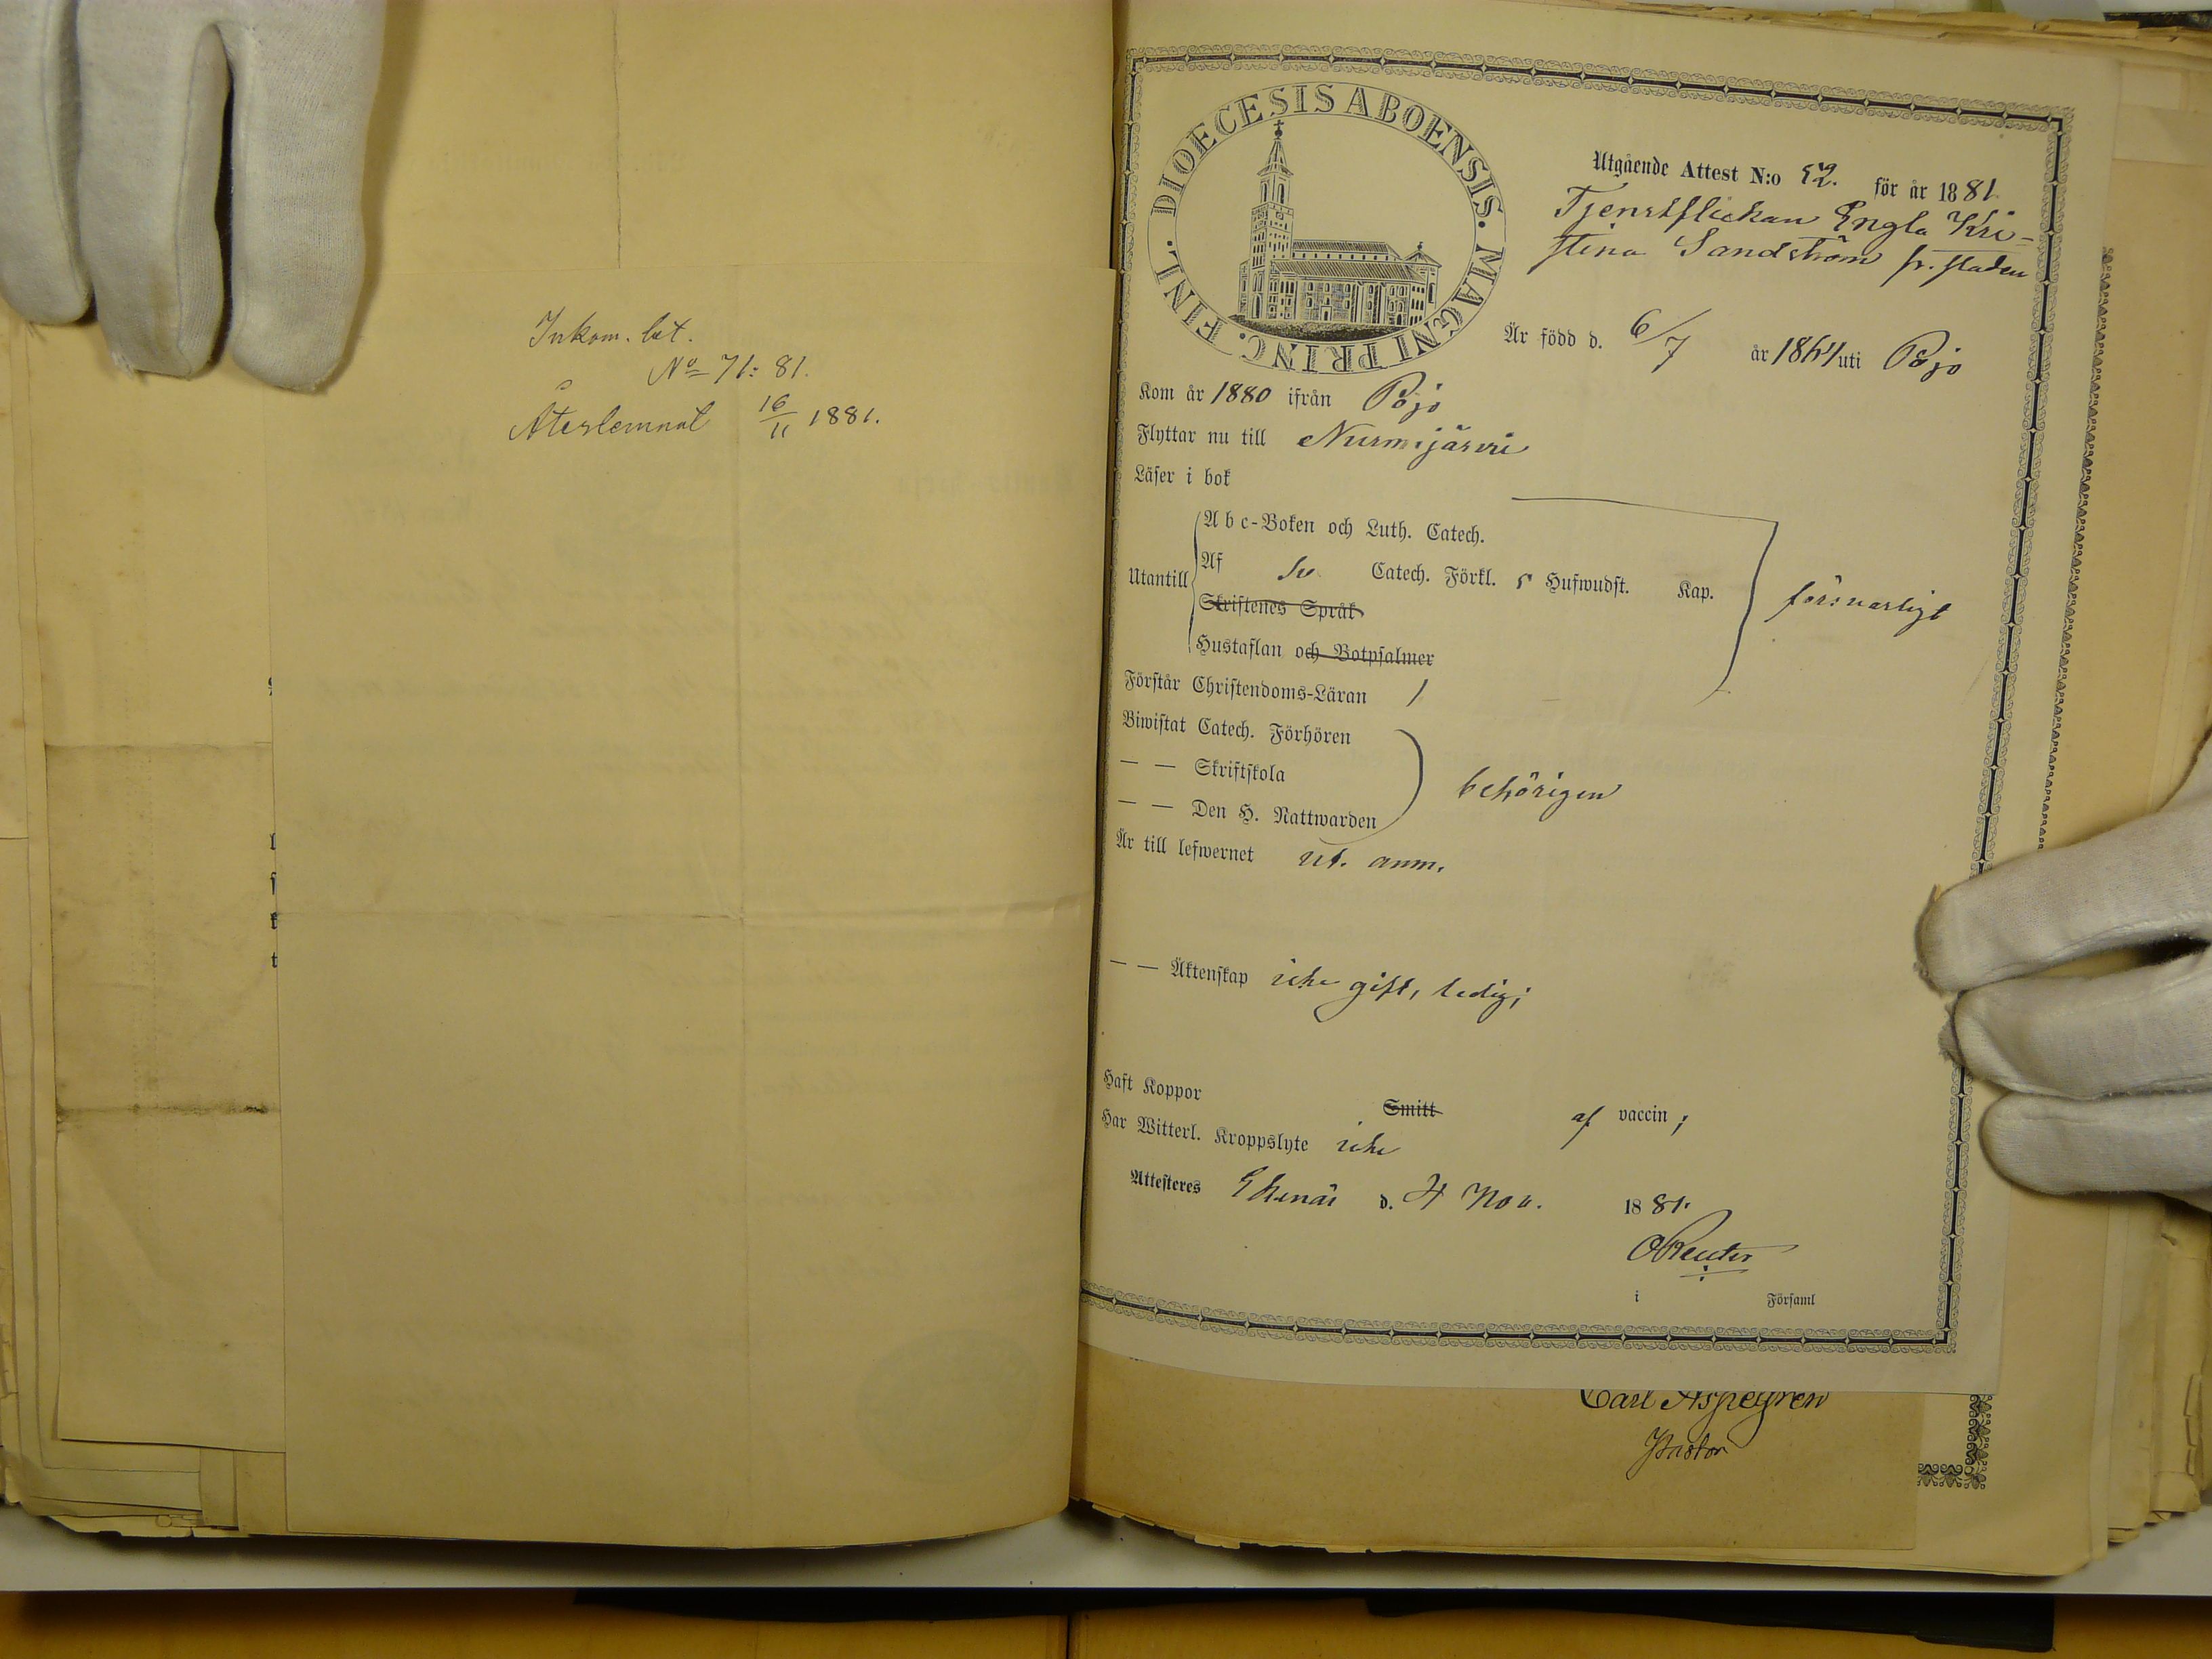 Inkom. bet.
No 71: 81.
Återlemnat 16/11 1881.
DIOECESIS ABOENSIS. MAGNI PRINC. FINL.
Utgående Attest N:o 52. för år 1881
Tjenstflickan Engla Kri-
stina Sandström fr. staden
Är född d. 6/7 år 1864 uti Pojo
Kom år 1880 ifrån Pojo
Flyttar nu till Nurmijärvi
Läser i bok
Abc-Boken och Luth. Catech.
Utantill Af Sv. Catech. Förkl. 5 Hufwudst. Kap. försvarligt
Skriftenes Språk
Hustaflan och Botpsalmer
Förstår Christendoms-Läran
Biwistat Catech. Förhören
— — Skriftskola behörigen
— — Den H. Nattwarden
Är till lefwernet ut. anm.
— — Äktenskap icke gift, ledig;
Haft Koppor Smitt af vaccin;
Har Witterl. Kroppslyte icke
Attesteres Ekenäs d. 4 Nov. 1881.
OReuter
i Församl
Carl Aspegren
Pastor